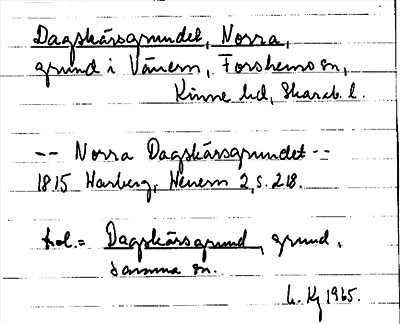 Dagskärsgrundet, Norra,
grund i Vänern, Forshems sn,
Kinne hd, Skarab. l.
-- Norra Dagskärsgrundet --
1815 Warberg, Wenern 2, s. 218.
Dagskärsgrund, grund,
samma sn.
1965.